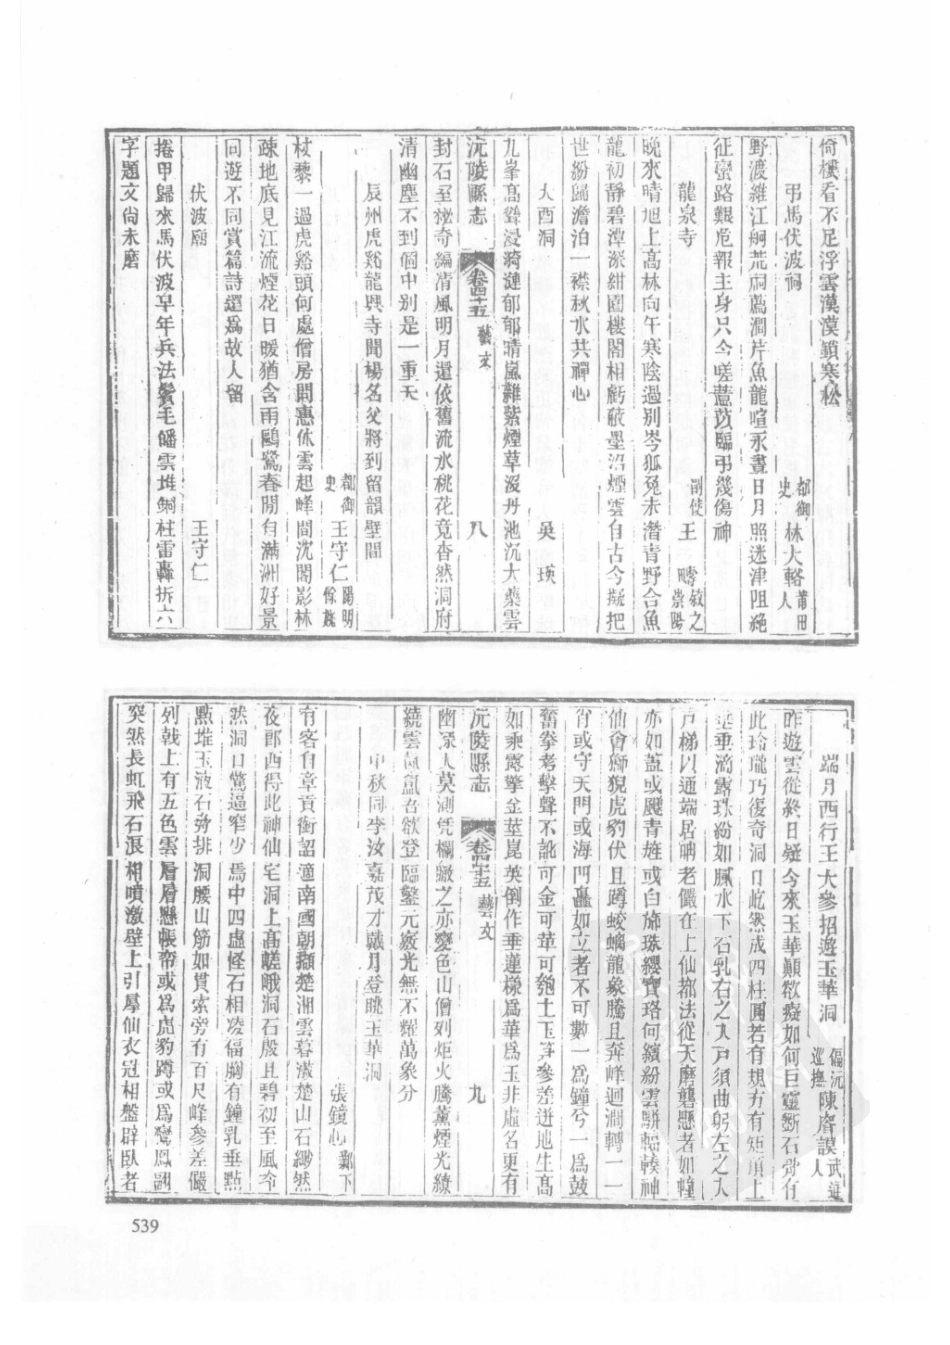 倚樓看不足浮雲漠漠鎖寒松
弔馬伏波祠 都御史林大輅莆田人
野渡維江舸荒祠薦澗芹魚龍喧永晝日月照迷津阻絕
征蠻路艱危報主身只今嗟薏苡臨弔幾傷神
龍泉寺 副使王疇敏之崇陽
晚來晴旭上高林向午寒陰過別岑狐兔未潛青野合魚
龍初靜碧潭深紺園樓閣相虧蔽墨沼煙雲自古今擬把
世紛歸澹泊一襟秋水共禪心
大酉洞 吳瑛
九峯高聳浸漪漣郁郁晴嵐雜紫煙草沒丹池沉大藥雲
沅陵縣志 卷四十五 藝文 八
封石至祕奇編清風明月還依舊流水桃花竟杳然洞府
清幽塵不到個中别是一重天
辰州虎谿龍興寺聞楊名父將到留韻壁間
都御史王守仁陽明餘姚
杖藜一過虎谿頭何處僧房問惠休雲起峰間沉閣影林
疎地底見江流煙花日暖猶含雨鷗鷺春閒自滿洲好景
同遊不同賞篇詩還爲故人留
伏波廟 王守仁
捲甲歸來馬伏波早年兵法鬢毛皤雲堆銅柱雷轟拆六
字題文尙未磨
端月西行王大參招遊玉華洞 偏沅巡撫陳睿謨武進人
昨遊雲從終日疑今來玉華顛欲癡如何巨靈斷石骨仔
此玲瓏巧復奇洞口屹然成四柱圓若有規方有矩頂上
垂滴露珠紛如膩水下石乳右之入戸須曲躬左之入
戸梯以通端居嗬老儼在上仙都法從天磨礱懸者如幢
亦如蓋或颺青旌或白旆珠纓寶珞何繽紛雲駢輻輳神
仙會獅猊虎豹伏且蹲蛟螭龍象騰且奔峰迴澗轉一一
肖或守天門或海門矗如立者不可數一爲鐘兮一爲鼓
奮拳考擊聲不訛可金可革可匏土玉筍參差迸地生高
如承露擎金莖崑英倒作垂蓮樣爲華爲玉非虛名更有
沅陵縣志 卷四十五 藝文 九
幽深人莫測凭欄瞰之亦變色山僧列炬火騰薰煙光繚
繞雲氤氳吾欲登臨鑿元竅光無不燿萬象分
中秋同李汝嘉茂才戴月登眺玉華洞
張鏡心鄴下
有客自章貢銜詔潼南國朝擷楚湘雲暮漱楚山石緲然
夜郎西得此神仙宅洞上高嵯峨洞石殷且碧初至風夸
然洞口驚逼窄少焉中四虛怪石相凌偪胸有鐘乳垂㸃
㸃堆玉波石勢排洞腰山筋如貫索旁有百尺峰參差儼
列戟上有五色雲層層懸帳帟或爲虎豹蹲或爲鸞鳳翮
突然長虹飛石浪相噴激壁上引羣仙衣冠相盤辟臥者
539